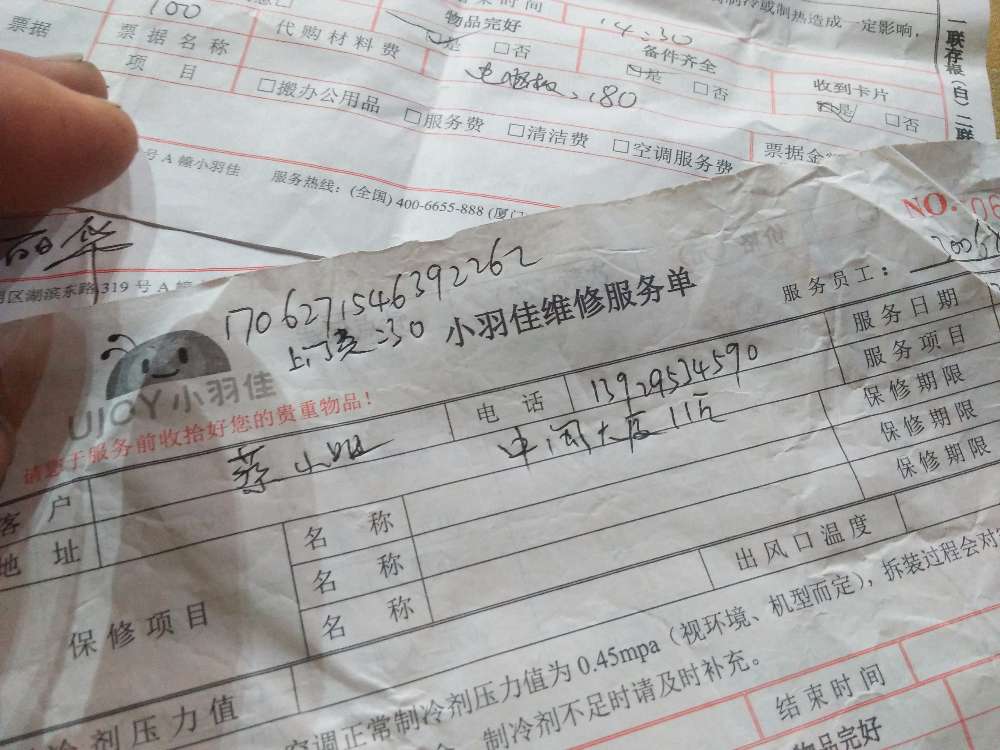 100
票据
票据名称
代购材料费
项目
物品完好
是 □否
结束时间
14:30
备件齐全
是 □否
制冷或制热造成一定影响,
180
收到卡片
是 □否
□搬办公用品 □服务费 □清洁费 □空调服务费
票据金
一联存根(白)二联
号A幢小羽佳 服务热线:(全国)400-6655-888(厦门
华
区湖滨东路319号A幢
NO. 06
1706271546392262
上门费:30
小羽佳维修服务单
服务员工:
UIQY小羽佳
请您于服务前收拾好您的贵重物品!
客户
蔡小姐
电话
13929534590
服务日期
地址
中闽大厦11
服务项目
保修项目
名称
保修期限
名称
保修期限
名称
保修期限
出风口温度
冷剂压力值
空调正常制冷剂压力值为0.45mpa(视环境、机型而定),拆装过程会对
制冷剂不足时请及时补充。
结束时间
物品完好